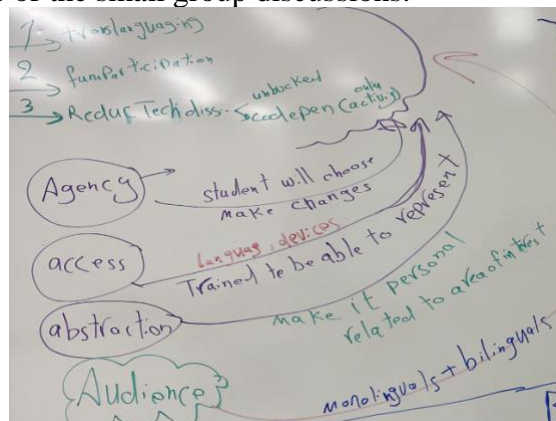 of the small group discussions.
1 translanguaging
2 fun Participation
3 Reduce Tech diss.
unbucked
only
Agency
student will choose
make changes
access
languag, devices
Trained to be able to represent
abstraction
make it personal
related to area of intrest
Audience
monolinguals + bilinguals